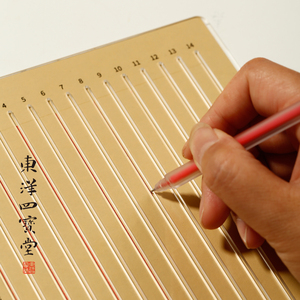 4 5 6 7 8 9 10 11 12 13 14
東洋四寶堂